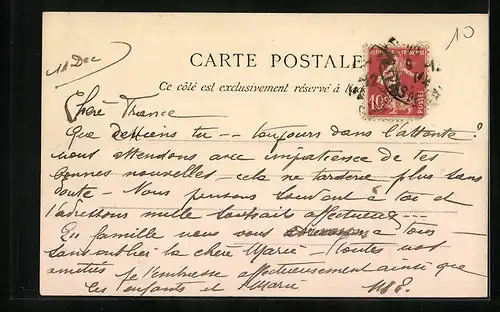 11 Dec
10
CARTE POSTALE
Ce côté est exclusivement réservé à l'ad
10
POSTES
Chère France
Que deviens tu -- toujours dans l'attente ?
nous attendons avec impatience de tes
bonnes nouvelles - cela ne tardera plus sans
doute - Nous pensons souvent à toi et
t'adressons mille souhaits affectueux --
En famille nous vous à tous -
sans oublier la chère Marie - Toutes nos
amitiés je t'embrasse affectueusement ainsi que
les enfants et Marie